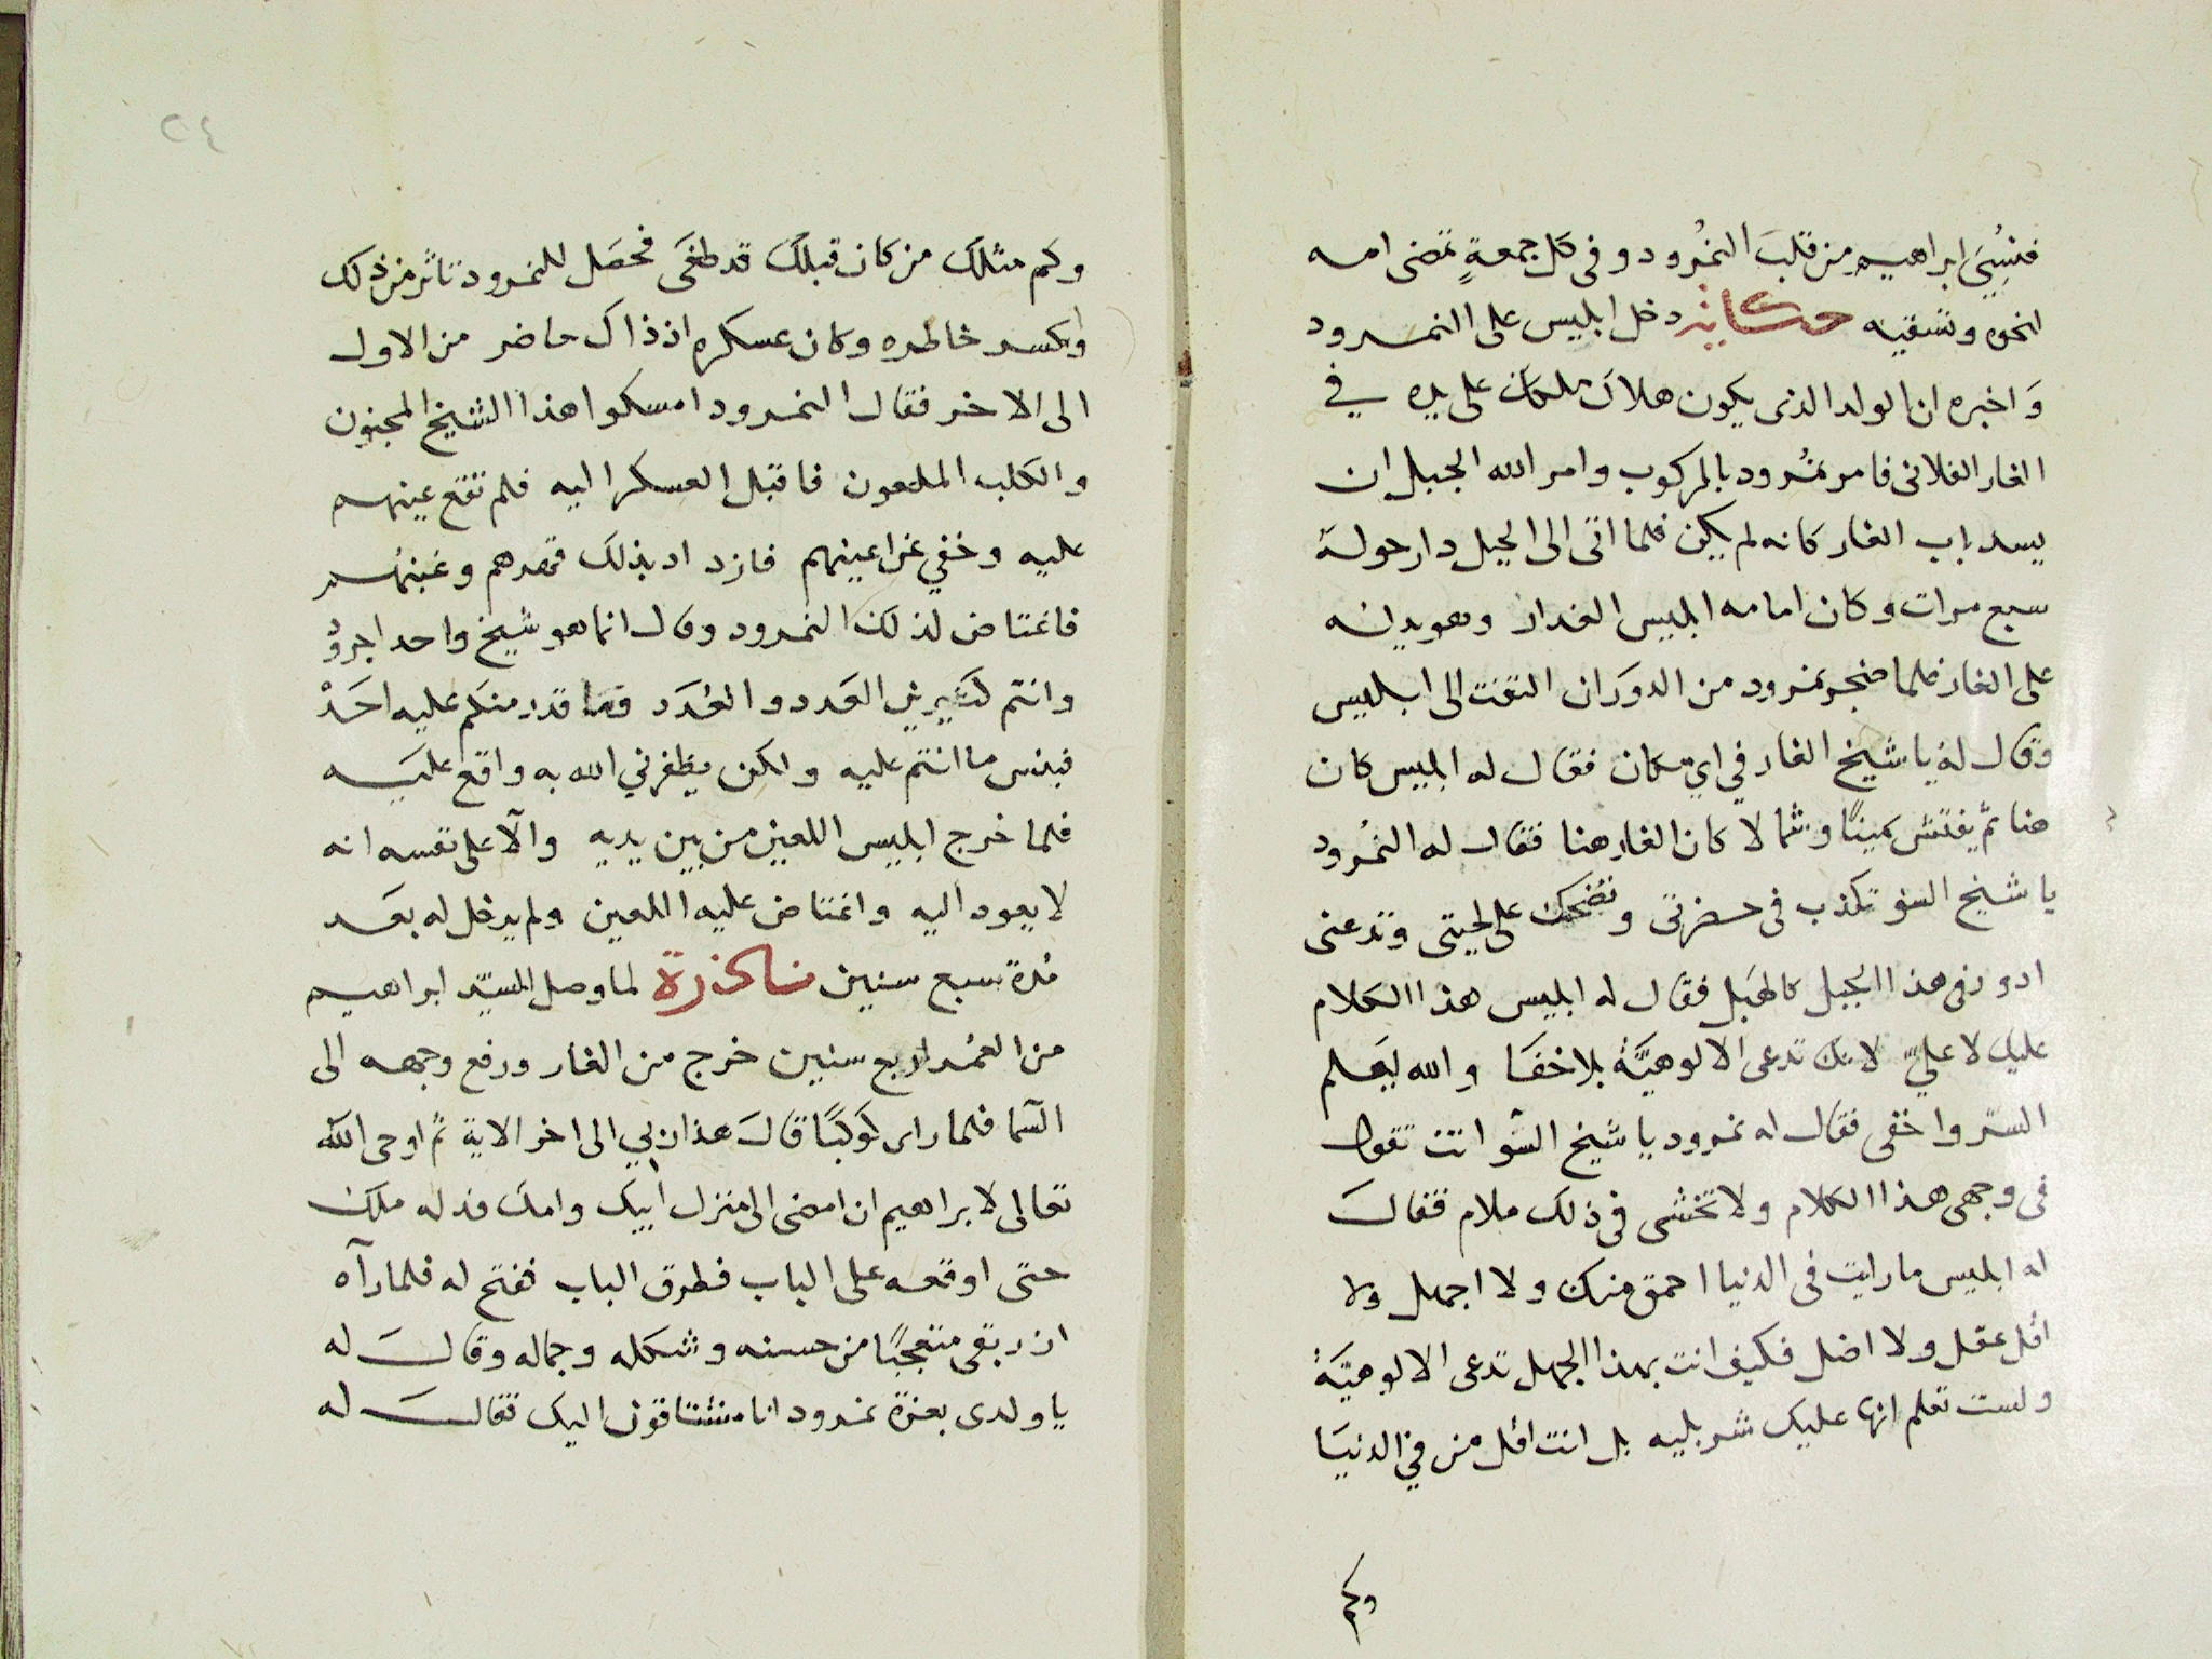 فنُسِيَ ابراهيم من قلب النمرود وفى كل جمعةٍ تمضى امه
لنحوه وتسقيه حكاية دخل ابليس على النمرود
وَاخبره ان الولد الذى يكون هلاك ملكك على يده في
الغار الفلانى فامر نمرود بالركوب وامر الله الجبل ان
يسد باب الغار كانه لم يكن فلما اتى الى الجبل دار حوله
سبع مرات وكان امامه ابليس الغدار وهو يدله
على الغار فلما ضجر نمرود من الدوران التفت الى ابليس
وقال له يا شيخ الغار في اي مكان فقال له ابليس كان
هنا ثم يفتش يمينًا وشمالا كان الغار هنا فقال له النمرود
يا شيخ السؤ تكذب فى حضرتى وتضحك على لحيتى وتدعنى
ادور فى هذا الجبل كالهبل فقال له ابليس هذا الكلام
عليك لا عليّ لانك تدعى الالوهيَّة بلا خفا والله يعلم
السرّ واخفى فقال له نمرود يا شيخ السّو انت تقول
فى وجهى هذا الكلام ولا تخشى فى ذلك ملام فقال
له ابليس ما رايت فى الدنيا احمق منك ولا اجهل ولا
اقل عقل ولا اضل فكيف انت بهذا الجهل تدعى الالوهيَّة
ولست تعلم انها عليك شر بليه بل انت اقل من في الدنيا
وكم
٢٤
وكم مثلك من كان قبلك قد طغَى فحصَل للنمرود تاثر من ذلك
وانكسر خاطره وكان عسكره اذ ذاك حاضر من الاول
الى الاخر فقال النمرود امسكوا هذا الشيخ المجنون
والكلب الملعون فاقبل العسكر اليه فلم تقع عينهم
عليه وخفي عن اعينهم فازداد بذلك قهرهم وغبنهم
فاغتاض لذلك النمرود وقال انما هو شيخ واحد اجرود
وانتم كثيرين العَدد والعُدَد فما قدر منكم عليه احَدْ
فبئس ما انتم عليه ولكن يظفرني الله به واقع عليه
فلما خرج ابليس اللعين من بين يديه وآلا على نفسه انه
لا يعود اليه واغتاض عليه اللعين ولم يدخل له بعد
مُدة سبع سنين لما وصل السيّد ابراهيم
من العُمر اربع سنين خرج من الغار ورفع وجهه الى
السّما فلما راى كَوكبًا قال هذا ربي الى اخر الاية ثم اوحى الله
تعالى لابراهيم ان امضى الى منزل ابيك وامك فدله ملك
حتى اوقعه على الباب فطرق الباب ففتح له فلما رآه
ازر بقى متعجبًا من حسنه وشكله وجماله وقال له
يا ولدى بعزة نمرود انا مشتاقون اليك فقال له